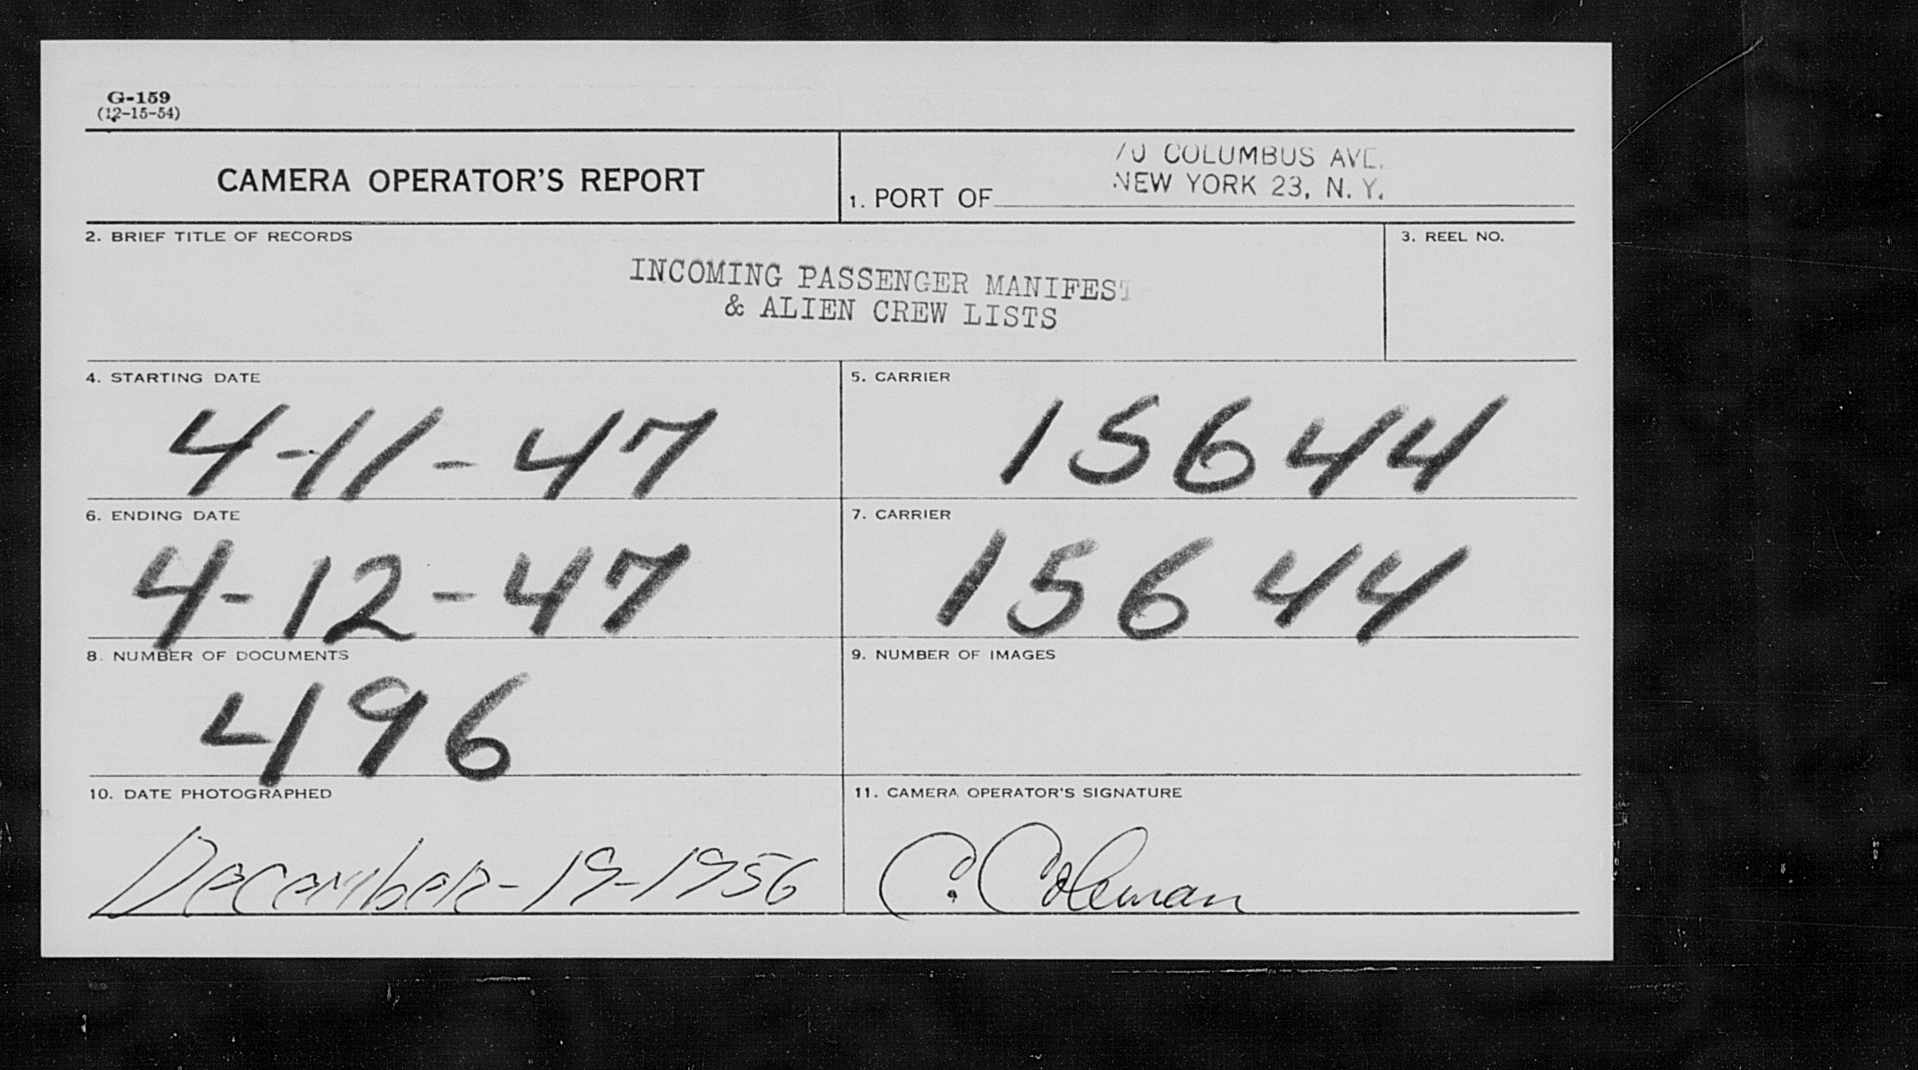 G-159
(12-15-54)
CAMERA OPERATOR'S REPORT
70 COLUMBUS AVE.
1. PORT OF NEW YORK 23, N. Y.
2. BRIEF TITLE OF RECORDS
3. REEL NO.
INCOMING PASSENGER MANIFEST
& ALIEN CREW LISTS
4. STARTING DATE
5. CARRIER
4-11-47
15644
6. ENDING DATE
7. CARRIER
4-12-47
15644
8. NUMBER OF DOCUMENTS
9. NUMBER OF IMAGES
496
10. DATE PHOTOGRAPHED
11. CAMERA OPERATOR'S SIGNATURE
December-19-1956
C. Coleman